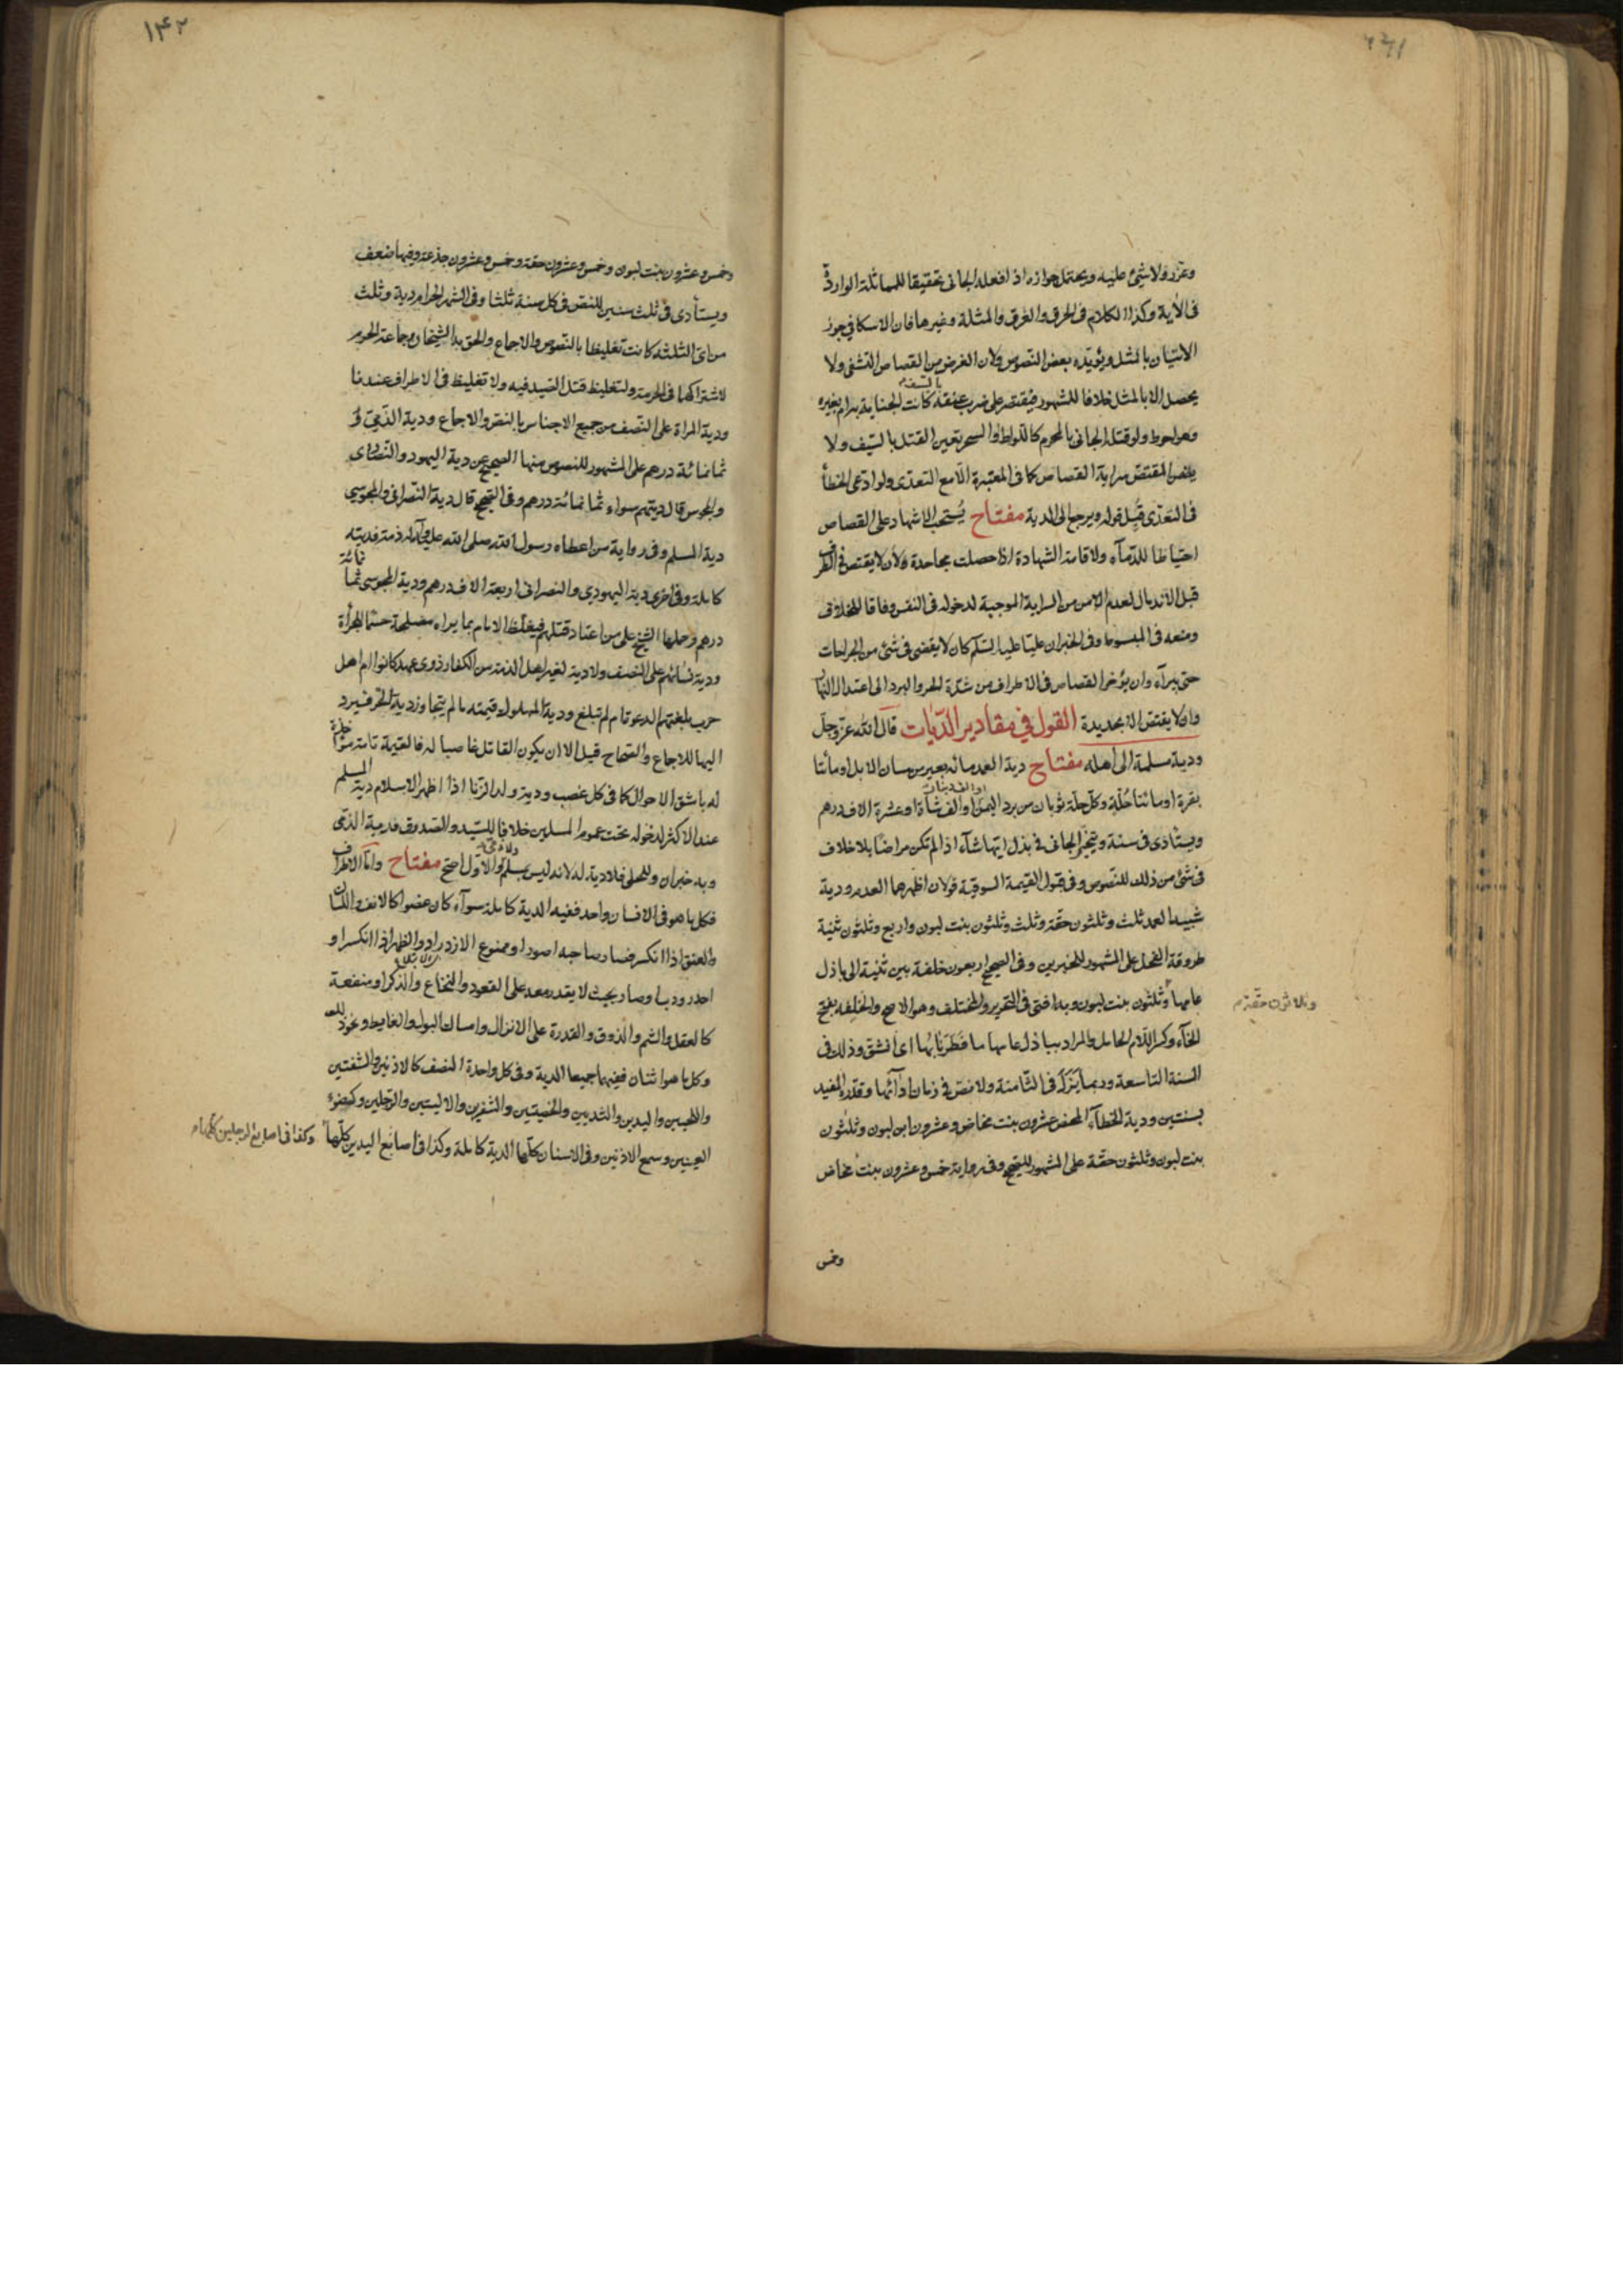 وعزر ولا شئ عليه ويحتمل جوازه اذا فعله الجانى تحقيقا للمماثلة الواردة
فى الآية وكذا الكلام فى الحرق والغرق والمثلة وغيرها فان الاسكافي جوز
الاتيان بالمثل ويؤيده بعض النصوص ولان الغرض من القصاص التشفى ولا
يحصل الا بالمثل خلافا للمشهور فيقتصر على ضرب عنقه بالسيف كانت الجناية به ام بغيره
وهو احوط ولو قتل الجانى بالمحرم كاللواط والسحر تعين القتل بالسيف ولا
يضمن المقتص سراية القصاص كما فى المعتبرة الا مع التعدى ولو ادعى الخطأ
فى التعدّى قُبِل قوله ويرجع الى الدية مفتاح يُستحب الاشهاد على القصاص
احتياطا للدّماء ولاقامة الشهادة اذا حصلت مجاحدة ولان لا يقتص فى الطرف
قبل الاندمال لعدم الامن من السراية الموجبة لدخوله فى النفس وفاقا للخلاف
ومنعه فى المبسوط وفى الخبر ان عليا عليه السلم كان لا يقضى فى شئ من الجراحات
حتى يبرأ وان يؤخر القصاص فى الاطراف من شدّة الحر والبرد الى اعتدال النهار
وان لا يقتص الا بحديدة القول فى مقادير الدّيات قال الله عزّ وجلّ
ودية مسلمة الى اهله مفتاح دية العمد مائة بعير من مسان الابل او مائتا
بقرة او مائتا حُلّة وكل حلّة ثوبان من برد اليمن او الف دينار او الف شاة او عشرة الاف درهم
ويستأدى فى سنة ويتخير الجانى فى بذل ايّها شاء اذا لم تكن مراضا بلا خلاف
فى شئ من ذلك للنصوص وفى قبول القيمة السوقية قولان اظهرهما العدم ودية
شبيه العمد ثلث وثلثون حقّة وثلث وثلثون بنت لبون واربع وثلثون ثنية
طروقة الفحل على المشهور للخبرين وفى الصحيح اربعون خلفة بين ثنية الى باذل
عامها وثلثون بنت لبون وبه افتى فى التحرير والمختلف وهو الاصح والخَلِفه بفتح
وثلاثون حقة م
الخاء وكسر اللام الحامل والمراد بباذل عامها ما فَطَرَ نابُها اى انشق وذلك فى
السنة التاسعة وربما بَزَلَ فى الثامنة ولا نص فى زمان ادائها وقدّره المفيد
بسنتين ودية الخطاء المحض عشرون بنت مخاض وعشرون ابن لبون وثلثون
بنت لبون وثلثون حقّة على المشهور للصحيح وفى رواية خمس وعشرون بنت مخاض
وخمس
١٤٢
وخمس وعشرون بنت لبون وخمس وعشرون حقة وخمس وعشرون جذعة وفيها ضعف
ويستأدى فى ثلث سنين للنص فى كل سنة ثلثا وفى الشهر الحرام دية وثلث
من اى الثلثة كانت تغليظا بالنصوص والاجماع والحق به الشيخان وجماعة الحرم
لاشتراكهما فى الحرمة ولتغليظ قتل الصيد فيه ولا تغليظ فى الاطراف عندنا
ودية المراة على النصف من جميع الاجناس بالنص والاجماع ودية الذّمى
ثمانمائة درهم على المشهور للنصوص منها الصحيح عن دية اليهود والنصارى
والمجوس قال ديتهم سواء ثمانمائة درهم وفى الصحيح قال دية النصرانى والمجوسى
دية المسلم وفى رواية من اعطاه رسول الله صلى الله عليه وآله ذمة فديته
كاملة وفى اخرى دية اليهودى والنصرانى اربعة الاف درهم ودية المجوسى ثمانمائة
درهم وحملها الشيخ على من اعتاد قتلهم فيغلظ الامام بما يراه مصلحة حسما للجرأة
ودية نسائهم على النصف ولا دية لغير اهل الذمة من الكفار ذوى عهد كانوا ام اهل
حرب بلغتهم الدعوة ام لم تبلغ ودية المملوك قيمته ما لم يتجاوز دية الحر فيرد
اليها للاجماع والصحاح قيل الا ان يكون القاتل غاصبا له فالقيمة تامة
له باشق الاحوال كما فى كل غصب ودية ولد الزنا اذا اظهر الاسلام دية المسلم
عند الاكثر لدخوله تحت عموم المسلمين خلافا للسّيد والصدوق فدية الذمى
وبه خبران وللحلى فلا دية له لانه ليس بمسلم ولا ذمى والاول اصح مفتاح واما الاطراف
فكل ما هو فى الانسان واحد ففيه الدية كاملة سواء كان عضوا كالانف واللسان
والعنق اذا انكسر فصار صاحبه اصور او ممنوع الازدراد والظهر اذا انكسر او
احدودب او صار بحيث لا يقدر معه على القعود والنخاع والذكر او منفعة
كالعقل والشم والذوق والقدرة على الانزال وامساك البول والغايط ونحو ذلك
وكل ما هو اثنان ففيهما جميعا الدية وفى كل واحدة النصف كالاذنين والشفتين
واللحيين واليدين والثديين والخصيتين والشفرين والاليتين والرجلين وكضوء
العينين وسمع الاذنين وفى الاسنان كلّها الدية كاملة وكذا فى اصابع اليدين كلّها
وكذا فى اصابع الرجلين كلّها م